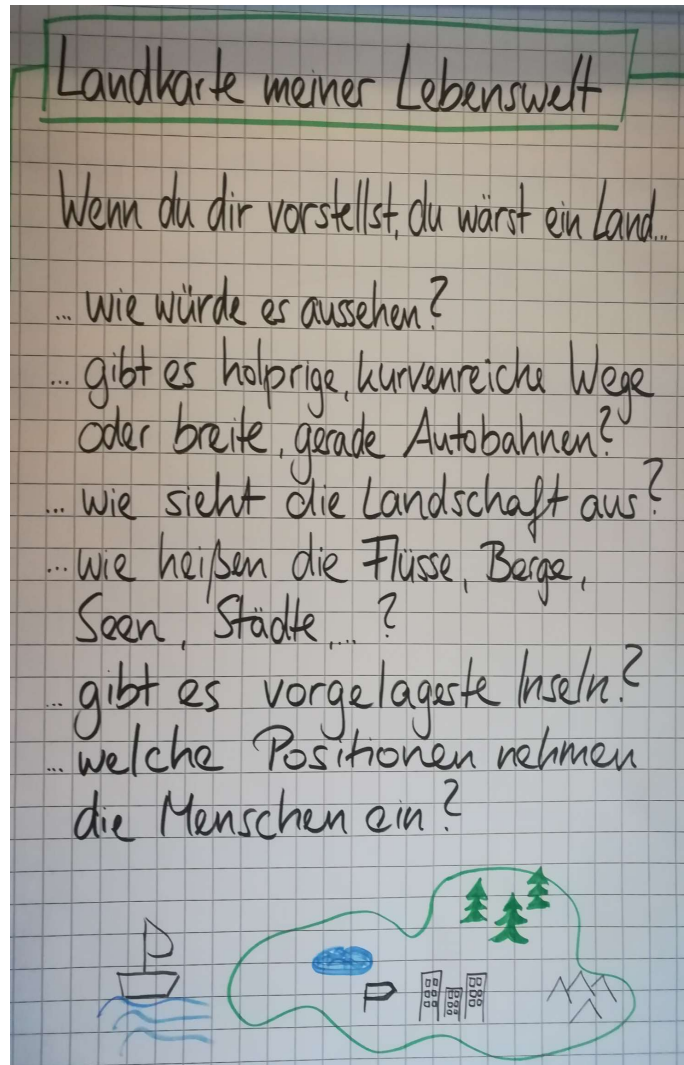 Landkarte meiner Lebenswelt
Wenn du dir vorstellst, du wärst ein Land...
... wie würde es aussehen?
... gibt es holprige, kurvenreiche Wege
oder breite, gerade Autobahnen?
... wie sieht die Landschaft aus?
... wie heißen die Flüsse, Berge,
Seen, Städte,... ?
... gibt es vorgelagerte Inseln?
... welche Positionen nehmen
die Menschen ein?